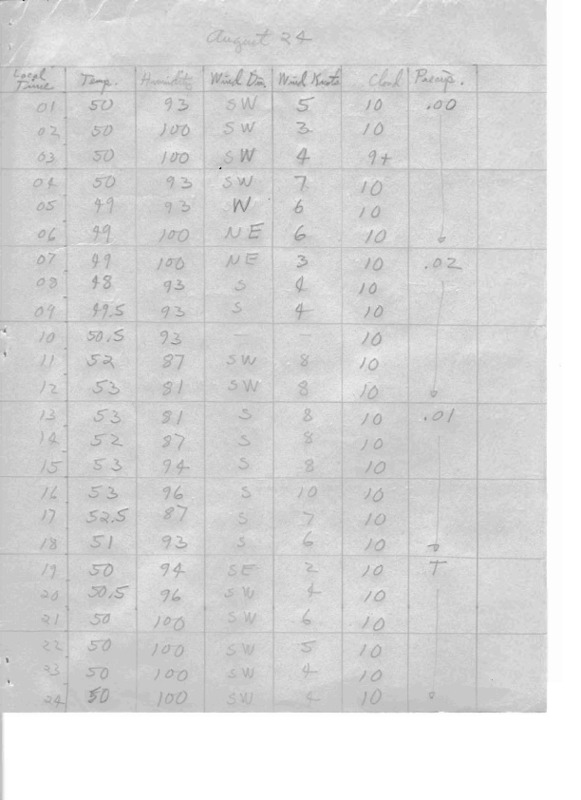 August 24
Local Time Temp. Humidity Wind Dir. Wind Knots Cloud Precip.
01 50 93 SW 5 10 .00
02 50 100 SW 3 10
03 50 100 SW 4 9+
04 50 93 SW 7 10
05 49 93 W 6 10
06 49 100 NE 6 10
07 49 100 NE 3 10 .02
08 48 93 S 4 10
09 49.5 93 S 4 10
10 50.5 93 — — 10
11 52 87 SW 8 10
12 53 81 SW 8 10
13 53 81 S 8 10 .01
14 52 87 S 8 10
15 53 94 S 8 10
16 53 96 S 10 10
17 52.5 87 S 7 10
18 51 93 S 6 10
19 50 94 SE 2 10 T
20 50.5 96 SW 4 10
21 50 100 SW 6 10
22 50 100 SW 5 10
23 50 100 SW 4 10
24 50 100 SW 4 10